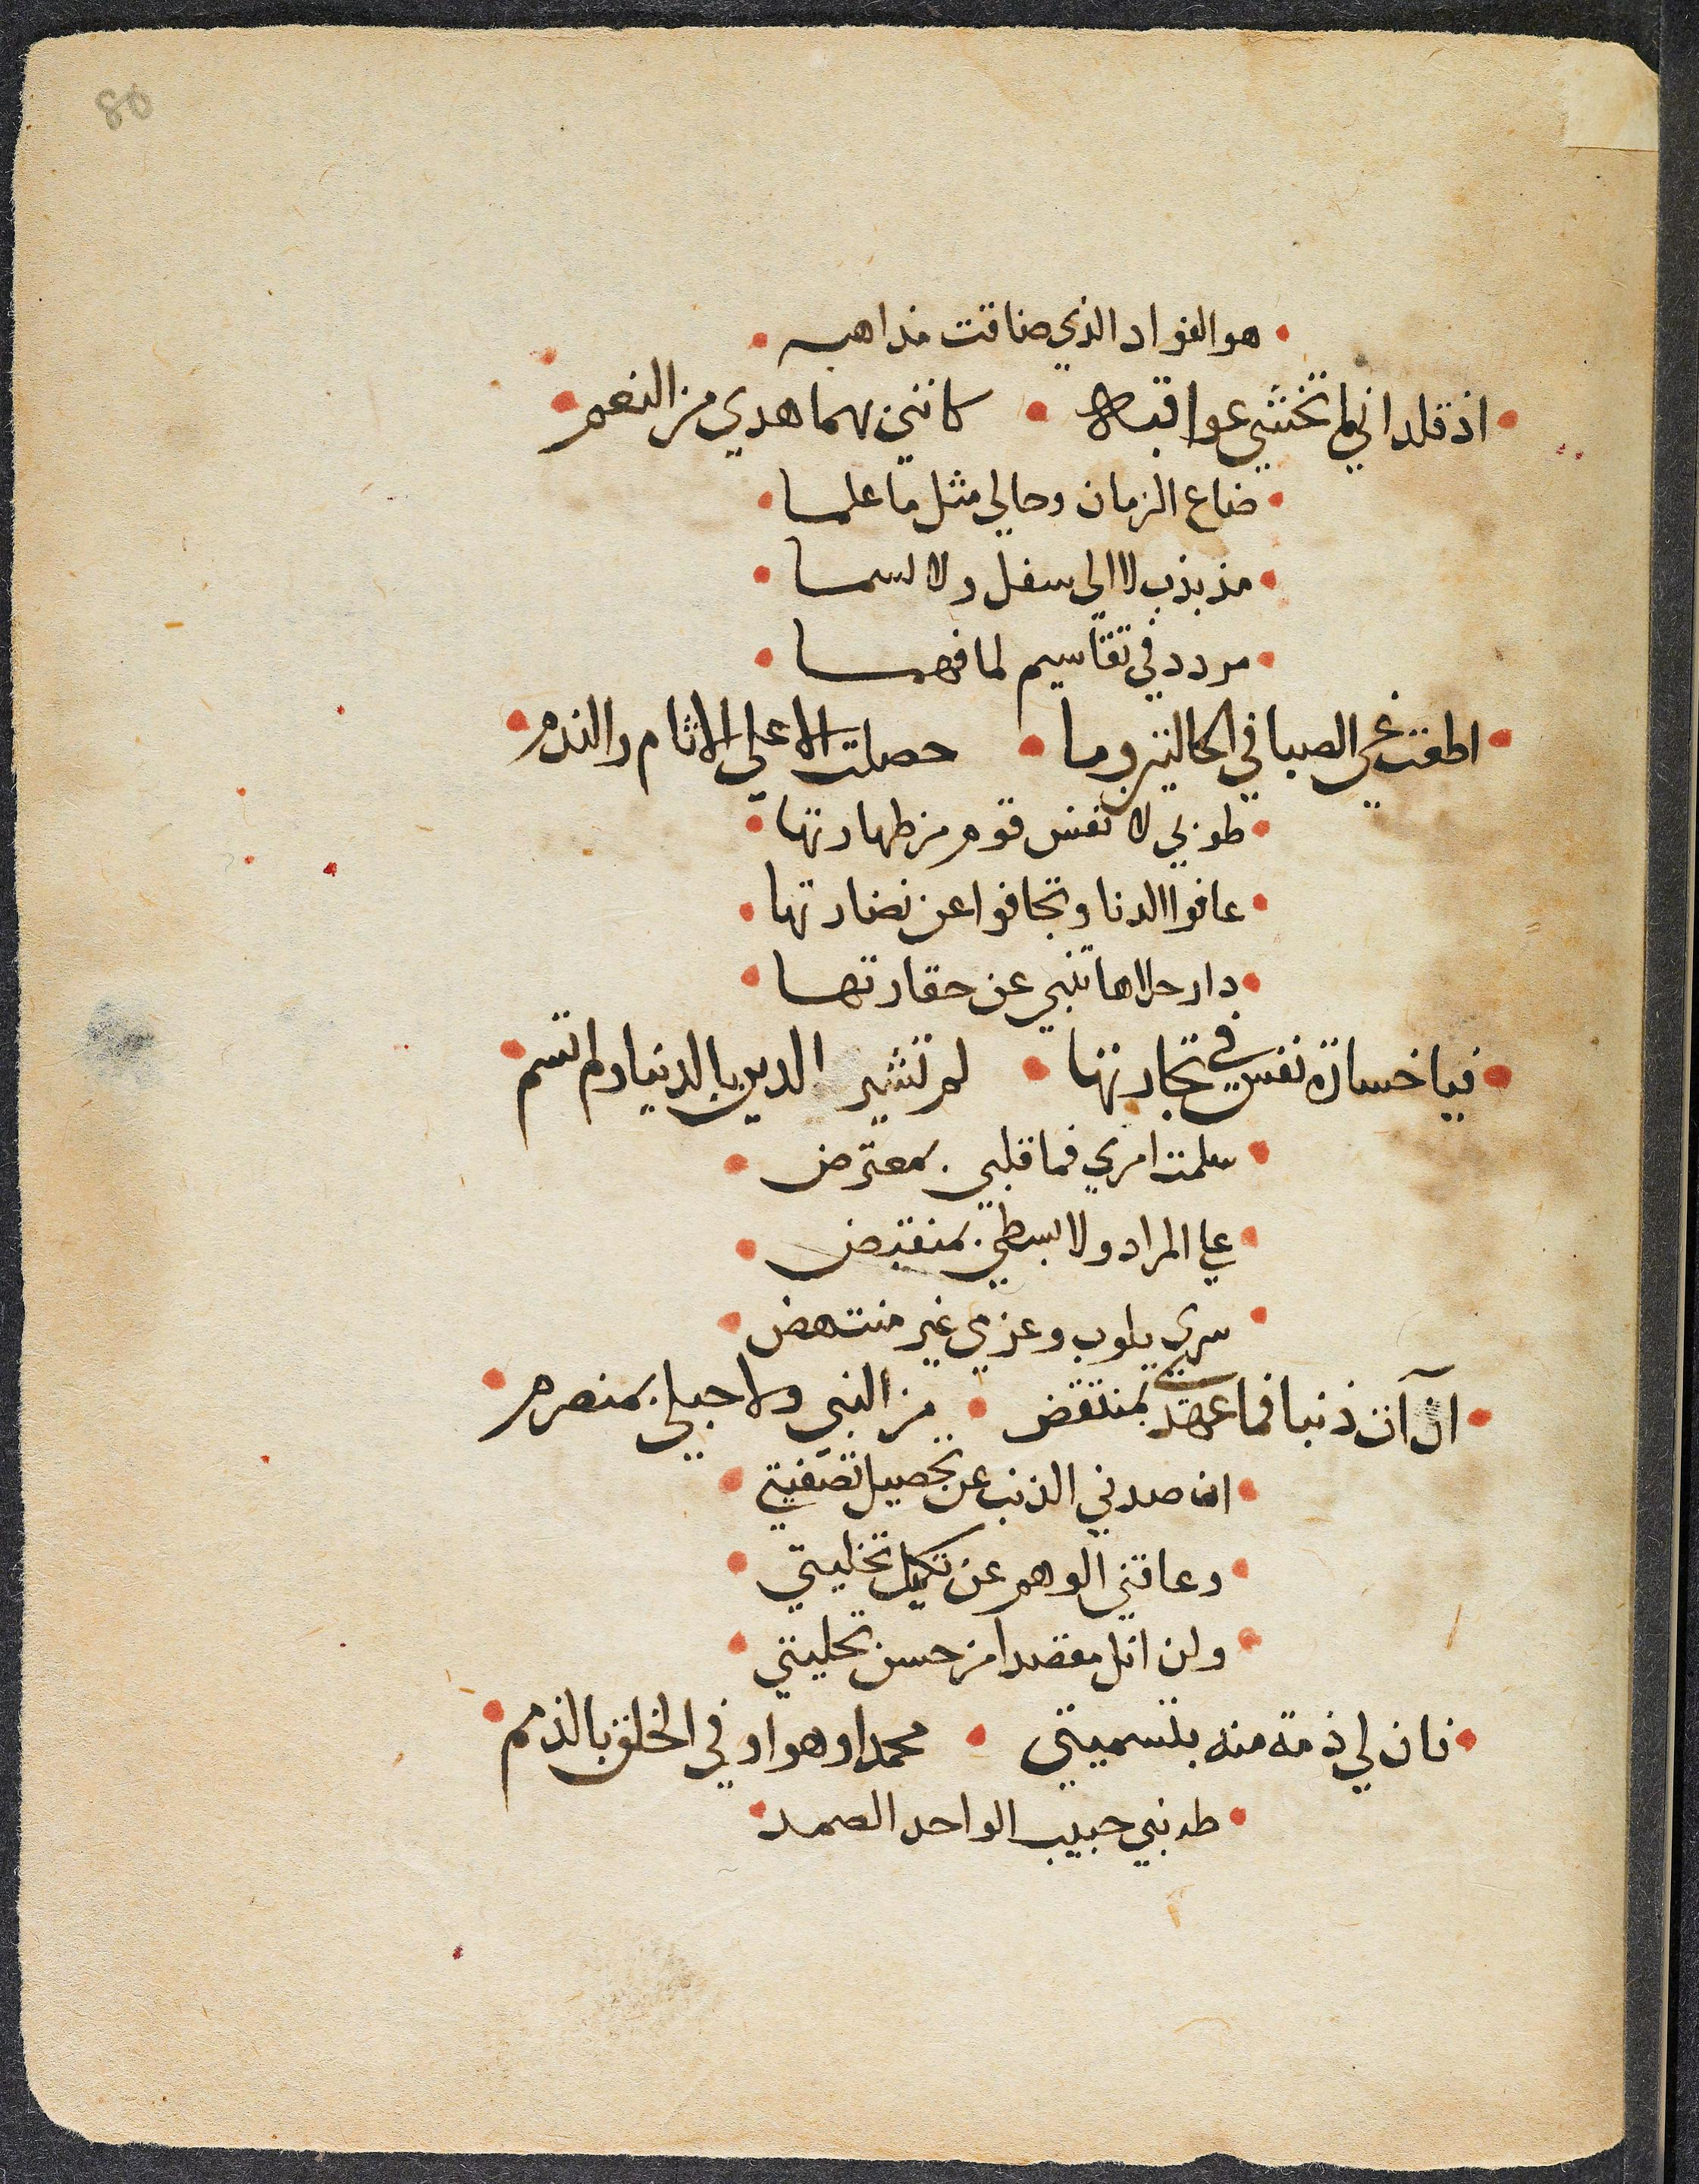 80
هو الفواد الذي ضاقت مذاهبه
اذ قلداني لما تخشي عواقبه • كانني بهما هدي من النعم
ضاع الزمان وحالي مثل ما علما
مذبذب لا الي سفل ولا لسما
مردد في تقاسيم لما فهما
اطعت غي الصبا في الحالتين وما • حصلت الا علي الاثام والندم
طوبي لانفس قوم من طهارتها
عافوا الدنا وتجافوا عن نضارتها
دار حلاها تنبي عن حقارتها
فيا خسارة نفس في تجارتها • لم تشتر الدين بالدنيا ولم تسم
سلمت امري فما قلبي بمعترض
علي المراد ولا بسطي بمنقبض
سري يلوب وعزمي غير منتهض
ان آت ذنبا فما عهدي بمنتقض • من النبي ولا حبلي بمنصرم
ان صدني الذنب عن تحصيل تصفيتي
وعاقني الوهم عن تكميل تخليتي
ولن انل مقصدا من حسن تحليتي
فان لي ذمة منه بتسميتي • محمدا وهو اوفي الخلق بالذمم
طه نبي حبيب الواحد الصمد